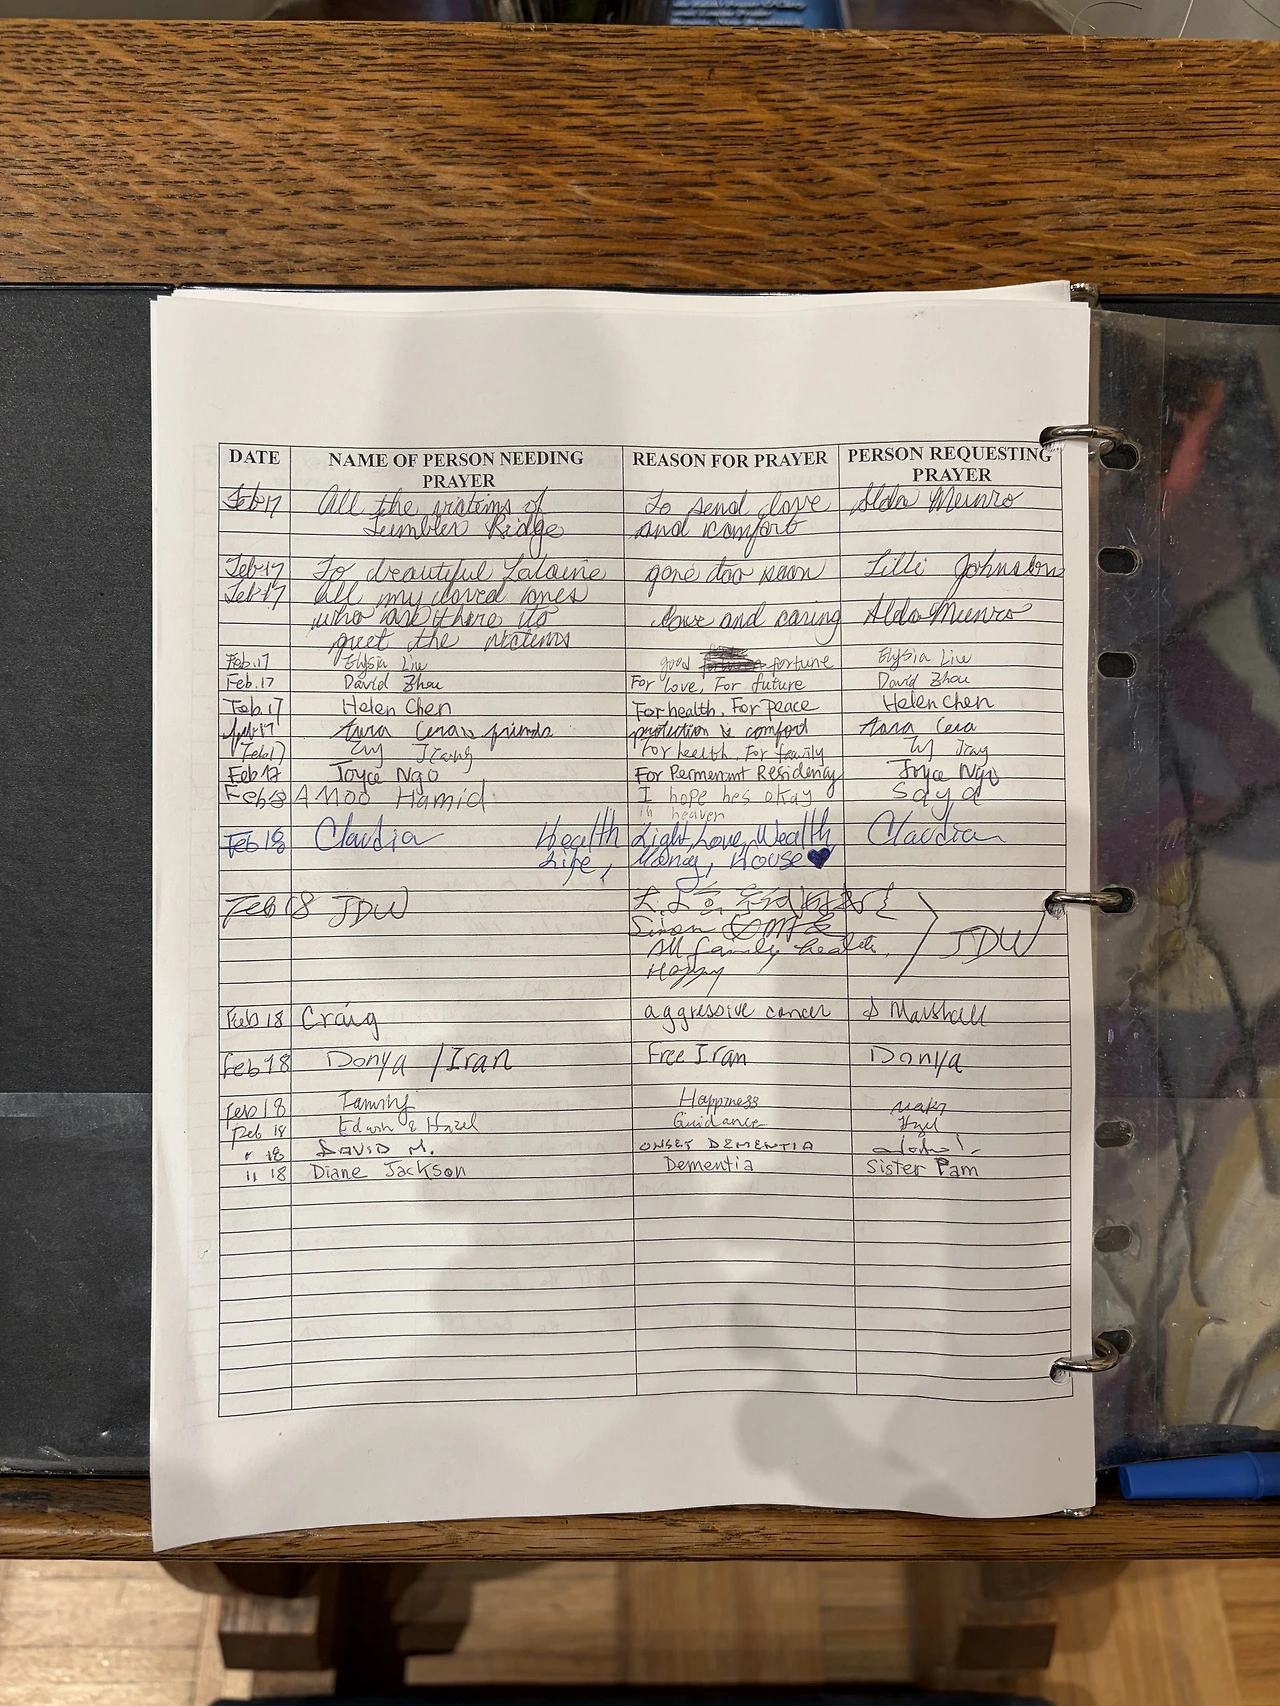 DATE NAME OF PERSON NEEDING PRAYER REASON FOR PRAYER PERSON REQUESTING PRAYER
Feb 17 All the victims of To send love Alda Munro
Tumbler Ridge and comfort
Feb 17 To beautiful gone too soon Lilli Johnston
Feb 17 all my loved ones
who are there to love and caring Alda Munro
greet the victims
Feb.17 Elysia Liu good fortune Elysia Liu
Feb.17 David Zhou For love, For future David Zhou
Feb.17 Helen Chen For health, For peace Helen Chen
Feb 17 friends protection & comfort
Feb 17 For health, For family
Feb 17 Joyce Ngo For Permenant Residency Joyce Ngo
Feb 18 Amoo Hamid I hope hes okay Saya
in heaven
Feb 18 Claudia Health Light, Love, Wealth Claudia
Life, Money, House ♥
Feb 18 JDW
JDW
All family health,
Happy
Feb 18 Craig aggressive cancer Marshall
Feb 18 Donya / Iran Free Iran Donya
Feb 18 Happiness
Feb 18 Edwin & Hazel Guidance
" 18 DAVID M. ONSET DEMENTIA
11 18 Diane Jackson Dementia Sister Pam